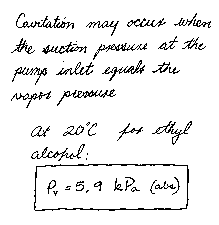 Cavitation may occur when
the suction pressure at the
pump inlet equals the
vapor pressure
At 20°C for ethyl
alcohol:
Pv = 5,9 kPa (abs)